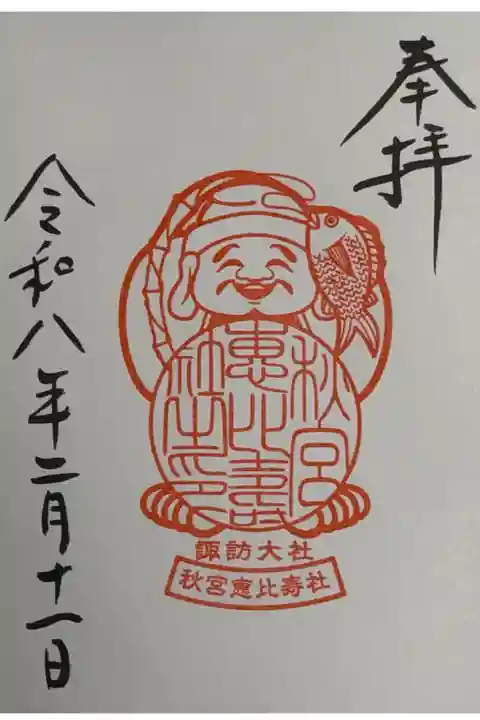 奉拝
秋宮
恵比壽
社之印
諏訪大社
秋宮恵比寿社
令和八年二月十一日